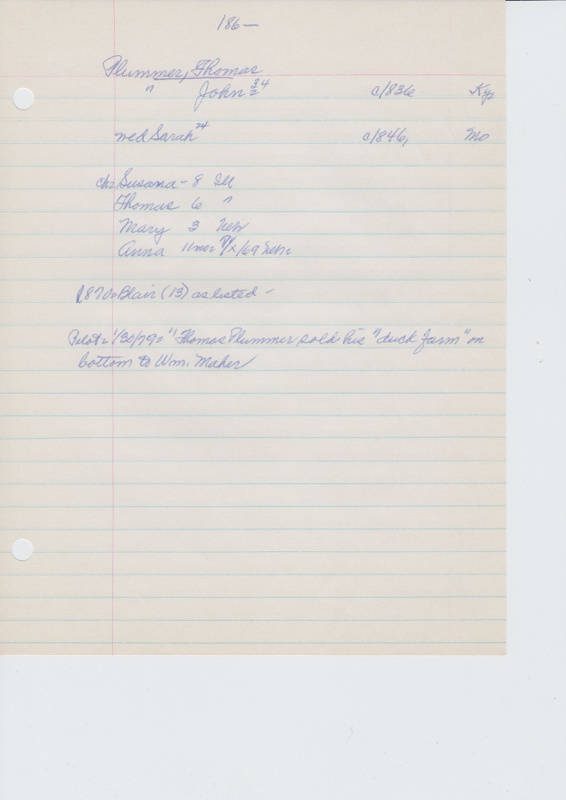 186—
Plummer, Thomas
" John 34 c/836 Ky
med Sarah 24 c/846, Mo
chr Susana - 8 Ill
Thomas 6 "
Mary 3 Nebr
Anna 11mos /69 Nebr
1870= Blair (13) as listed -
Pilot= 1/30/79= "Thomas Plummer sold his "duck farm" on
bottom to Wm. Maher